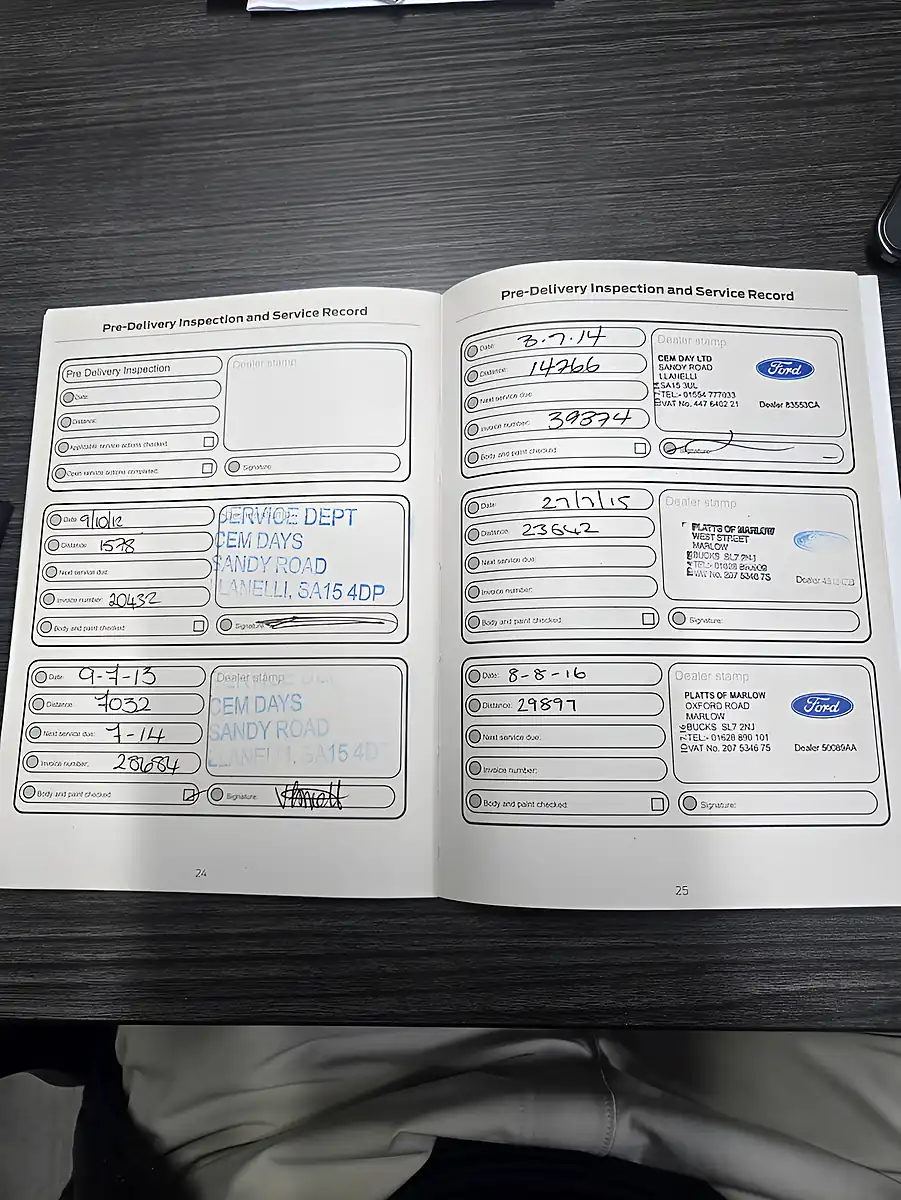 Pre-Delivery Inspection and Service Record
Pre Delivery Inspection
Date:
Distance:
Applicable service actions checked
Open service actions completed:
Dealer stamp
Signature:
Date: 9/10/12
Distance: 1578
Next service due:
Invoice number: 20432
Body and paint checked
SERVICE DEPT
CEM DAYS
SANDY ROAD
LLANELLI, SA15 4DP
Signature:
Date: 9-7-13
Distance: 7032
Next service due: 7-14
Invoice number: 28684
Body and paint checked
Dealer stamp
CEM DAYS
SANDY ROAD
LLANELLI, SA15 4DP
Signature:
24
Pre-Delivery Inspection and Service Record
Date: 3.7.14
Distance: 14766
Next service due:
Invoice number: 39374
Body and paint checked
Dealer stamp
CEM DAY LTD
SANDY ROAD
LLANELLI
SA15 3UL
TEL:- 01554 777033
VAT No. 447 6402 21
Ford
Dealer 83553CA
Signature:
Date: 27/7/15
Distance: 23642
Next service due:
Invoice number:
Body and paint checked
Dealer stamp
PLATTS OF MARLOW
WEST STREET
MARLOW
BUCKS SL7 2NJ
TEL:- 01628
VAT No. 207 5346 75
Dealer
Signature:
Date: 8-8-16
Distance: 29897
Next service due:
Invoice number:
Body and paint checked:
Dealer stamp
PLATTS OF MARLOW
OXFORD ROAD
MARLOW
BUCKS SL7 2NJ
TEL:- 01628 890 101
VAT No. 207 5346 75
Ford
Dealer 50089AA
Signature:
25